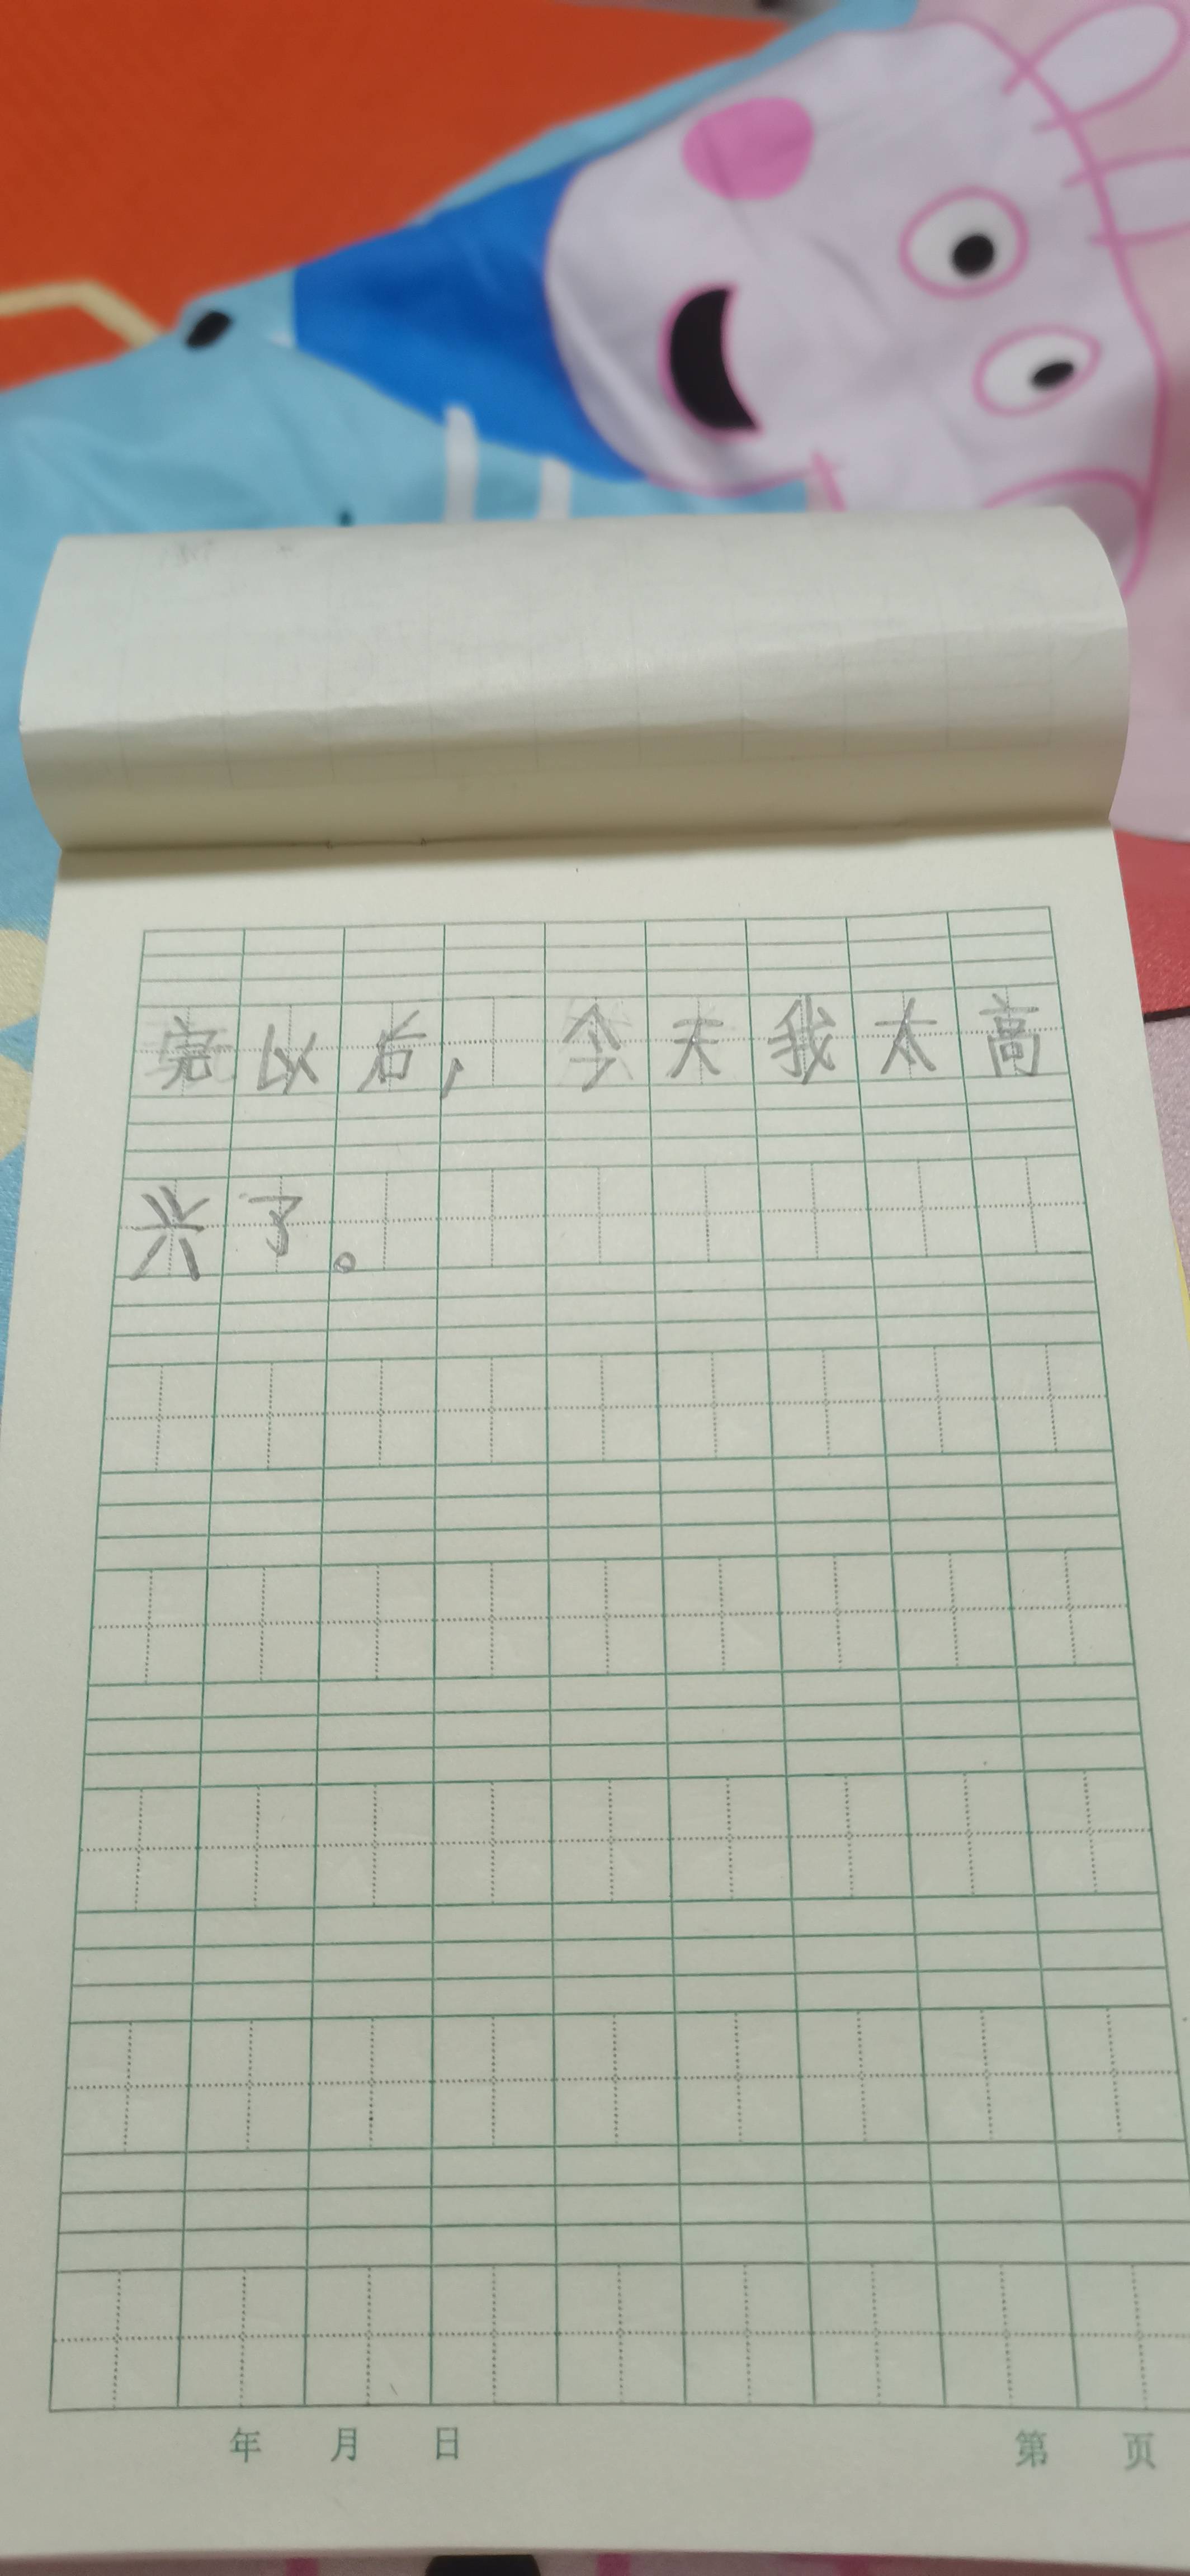 完以后，今天我太高
兴了。
年 月 日 第 页